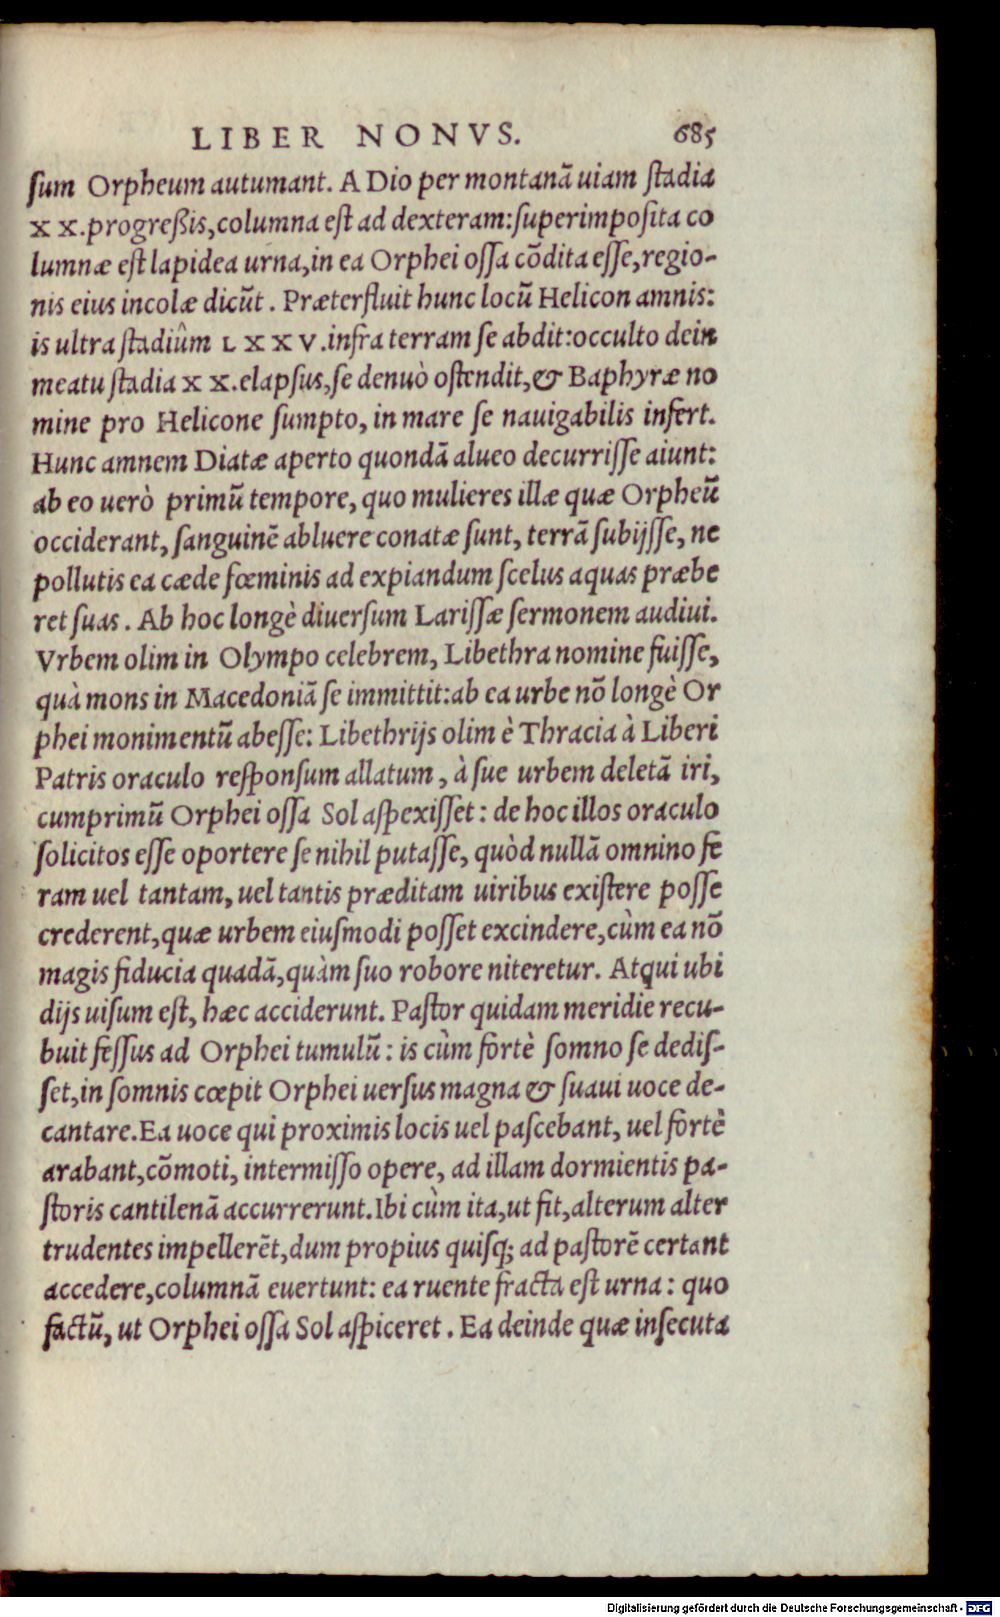 LIBER NONVS. 685
ſum Orpheum autumant. A Dio per montanã uiam ſtadia
X X. progreßis, columna eſt ad dexteram: ſuperimpoſita co
lumnæ eſt lapidea urna, in ea Orphei oſſa cõdita eſſe, regio-
nis eius incolæ dicũt. Præterfluit hunc locũ Helicon amnis:
is ultra ſtadiûm L X X V. infra terram ſe abdit: occulto dein
meatu ſtadia X X. elapſus, ſe denuò oſtendit, & Baphyræ no
mine pro Helicone ſumpto, in mare ſe nauigabilis infert.
Hunc amnem Diatæ aperto quondã alueo decurriſſe aiunt:
ab eo uerò primũ tempore, quo mulieres illæ quæ Orpheũ
occiderant, ſanguinẽ abluere conatæ ſunt, terrã ſubijſſe, ne
pollutis ea cæde fœminis ad expiandum ſcelus aquas præbe
ret ſuas. Ab hoc longè diuerſum Lariſſæ ſermonem audiui.
Vrbem olim in Olympo celebrem, Libethra nomine fuiſſe,
quà mons in Macedoniã ſe immittit: ab ea urbe nõ longè Or
phei monimentũ abeſſe: Libethrijs olim è Thracia à Liberi
Patris oraculo reſponſum allatum, à ſue urbem deletã iri,
cumprimũ Orphei oſſa Sol aſpexiſſet: de hoc illos oraculo
ſolicitos eſſe oportere ſe nihil putaſſe, quòd nullã omnino fe
ram uel tantam, uel tantis præditam uiribus exiſtere poſſe
crederent, quæ urbem eiuſmodi poſſet excindere, cùm ea nõ
magis fiducia quadã, quàm ſuo robore niteretur. Atqui ubi
dijs uiſum eſt, hæc acciderunt. Paſtor quidam meridie recu-
buit feſſus ad Orphei tumulũ: is cùm fortè ſomno ſe dediſ-
ſet, in ſomnis cœpit Orphei uerſus magna & ſuaui uoce de-
cantare. Ea uoce qui proximis locis uel paſcebant, uel fortè
arabant, cõmoti, intermiſſo opere, ad illam dormientis pa-
ſtoris cantilenã accurrerunt. Ibi cùm ita, ut fit, alterum alter
trudentes impellerẽt, dum propius quiſq; ad paſtorẽ certant
accedere, columnã euertunt: ea ruente fracta eſt urna: quo
factũ, ut Orphei oſſa Sol aſpiceret. Ea deinde quæ inſecuta
Digitalisierung gefördert durch die Deutsche Forschungsgemeinschaft - DFG